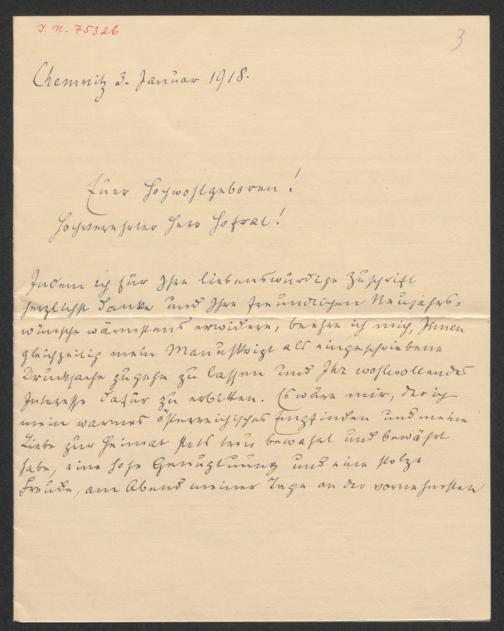 J. N. 75326
3
Chemnitz 3. Januar 1918.
Euer Hochwohlgeboren!
Hochverehrter Herr Hofrat!
Indem ich für Ihre liebenswürdige Zuschrift
herzlichst danke und Ihre freundlichen Neujahrs-
wünsche wärmstens erwidere, beehre ich mich, Ihnen
gleichzeitig mein Manuskript als eingeschriebene
Drucksache zugehn zu lassen und Ihr wohlwollendes
Interesse dafür zu erbitten. Es wäre mir, der ich
mein warmes österreichisches Empfinden und meine
Liebe zur Heimat stets treu bewahrt und bewährt
habe, eine hohe Genugtuung und eine stolze
Freude, am Abend meiner Tage an der vornehmsten